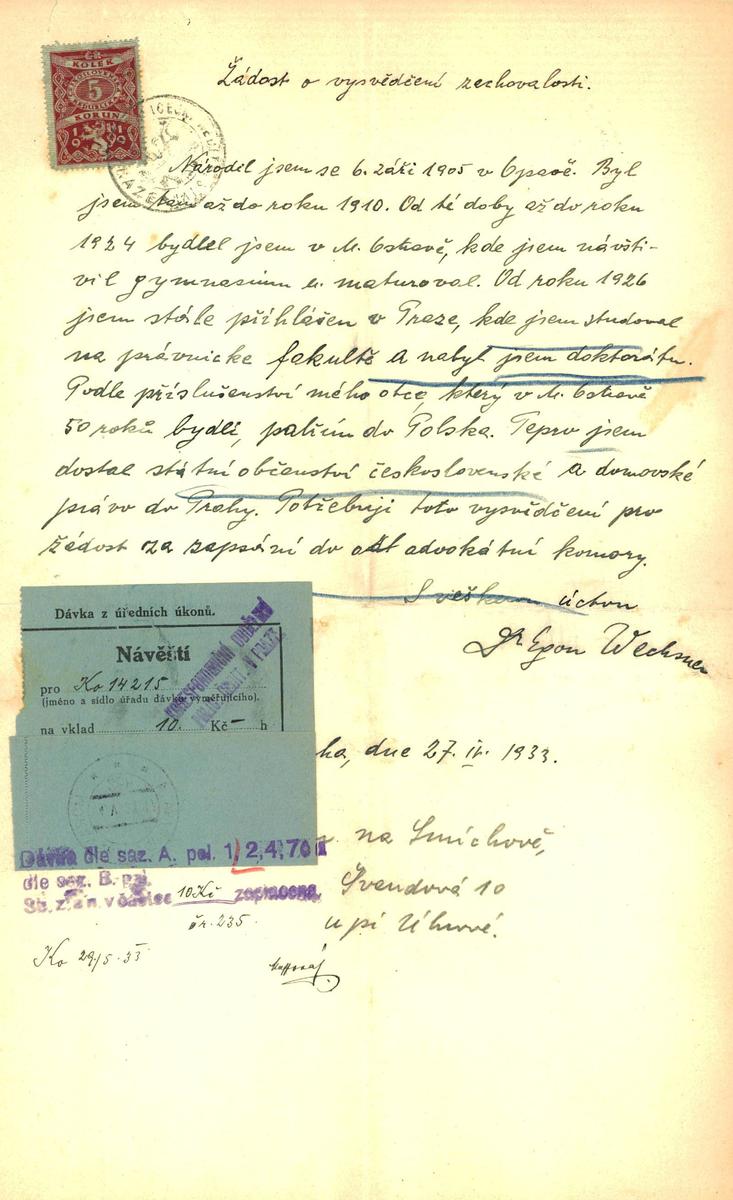 ČR
KOLEK
5
KORUN
1919
Žádost o vysvědčení zachovalosti.
Národil jsem se 6. září 1905 v Opavě. Byl
jsem tam až do roku 1910. Od té doby až do roku
1924 bydlel jsem v M. Ostravě, kde jsem návští-
vil gymnasium a maturoval. Od roku 1926
jsem stále přihlášen v Praze, kde jsem studoval
na právnické fakultě a nabyl jsem doktorátu.
Podle příslušenství mého otce, který v M. Ostravě
50 roků bydlí, patřím do Polska. Teprv jsem
dostal státní občenství československé a domovské
právo do Prahy. Potřebuji toto vysvědčení pro
žádost za zapsání do advokátní komory.
S veškerou úctou
Dr Egon Wechsner
Dávka z úředních úkonů.
Návěští
pro Ko 14215
(jméno a sídlo úřadu dávku vyměřujícího).
na vklad 10.- Kč h
ha, dne 27. IV. 1933.
na Smíchově,
Švandová 10
u pí Uhrové.
Dávka dle saz. A. pol. 1, 2, 4, 7
dle saz. B. pol.
Sb. z. a n. v částce 10 Kč zaplacena
čr. 235.
Ko 29/5. 33